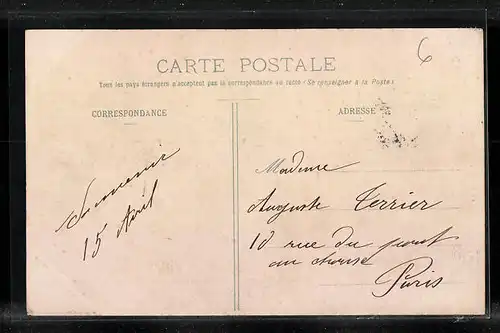 6
CARTE POSTALE
Tous les pays étrangers n'acceptent pas la correspondance au recto (Se renseigner à la Poste)
CORRESPONDANCE
ADRESSE
Souvenir
15 Avril
Madame
Auguste Terrier
10 rue du pont
au choux
Paris